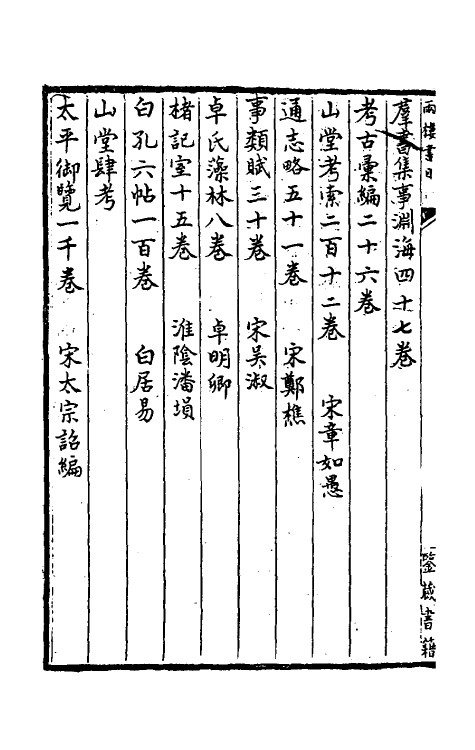 兩樓書目
羣書集事淵海四十七卷
考古彙編二十六卷
山堂考索二百十二卷 宋章如愚
通志略五十一卷 宋鄭樵
事類賦三十卷 宋吳淑
卓氏藻林八卷 卓明卿
楮記室十五卷 淮陰潘塤
白孔六帖一百卷 白居易
山堂肆考
太平御覽一千卷 宋太宗詔編
鑒藏書籍